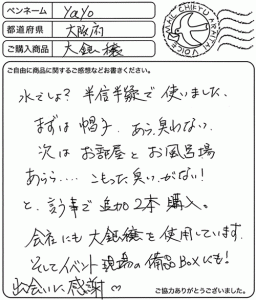 ペンネーム yayo
都道府県 大阪府
ご購入商品 大銀様
MAIL CHIEYU ARAITAI VOICE
ご自由に商品に関するご感想などお書きください。
水でしょ？ 半信半疑で使いました。
まずは帽子 あら、臭わない。
次は お部屋と お風呂場
あらら…. こもった臭いがない！
と、言う事で 追加2本 購入。
会社にも 大銀様を 使用しています。
そしてイベント現場の備品BOXにも！
出会いに感謝♡
ご協力ありがとうございました。